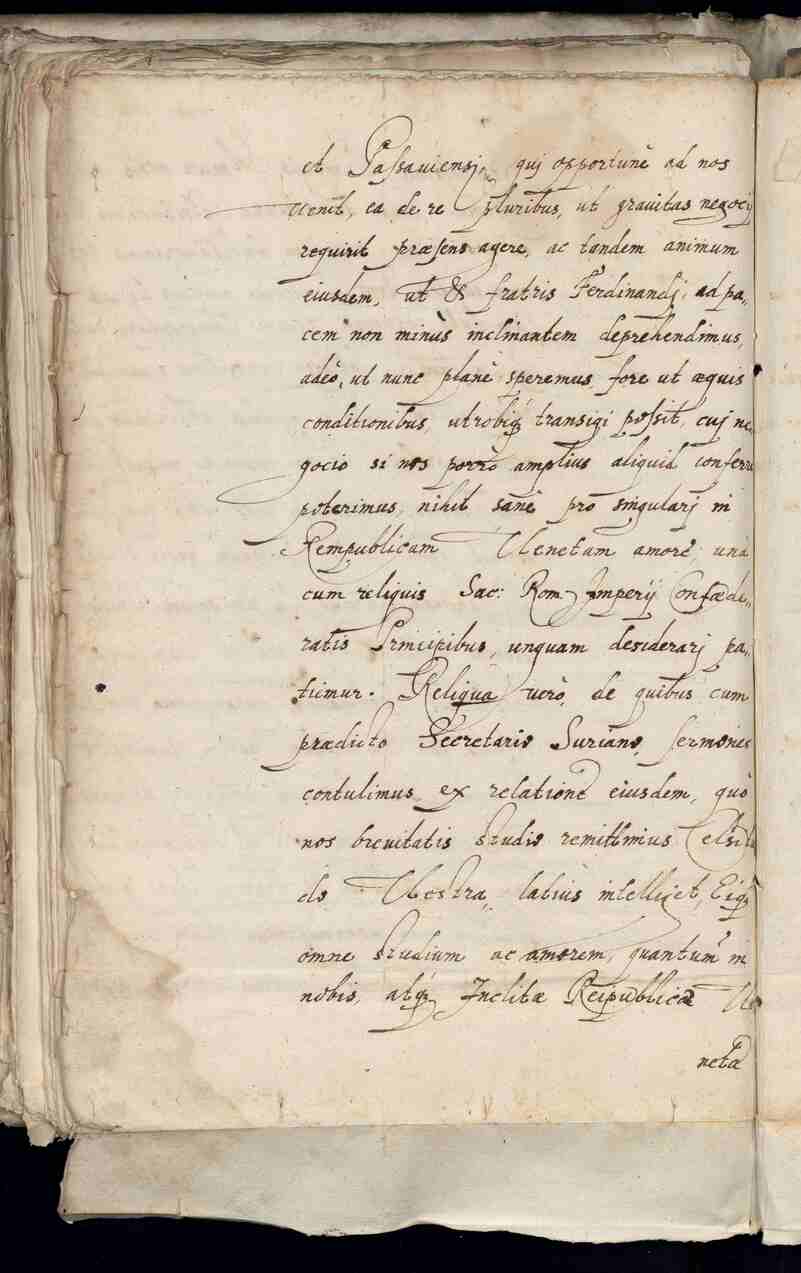 et Passauiensj, quj opportunè ad nos
venit, ea de re pluribus, ut grauitas negocij
requirit præsens agere, ac tandem animum
eiusdem, ut & fratris Ferdinandj, ad pa„
cem non minùs inclinantem deprehendimus,
adeò, ut nunc planè speremus, fore ut æquis
conditionibus, utrobiq; transigi possit, cuj ne„
gocio si nos porrò amplius aliquid conferre
poterimus, nihil sanè pro singularj in
Rempublicam Venetam amore, unà
cum reliquis Sac: Rom: Imperij Confæde„
ratis Principibus, unquam desiderarj pa„
tiemur. Reliqua verò, de quibus cum
prædicto Secretario Suriano, sermones
contulimus, ex relatione eiusdem, quò
nos breuitatis studio remittimus Celsitu
do Vestra, latiùs intelliget, Eiq;
omne studium ac amorem, quantum in
nobis, atq; Inclitæ Reipublicæ Ve
netæ